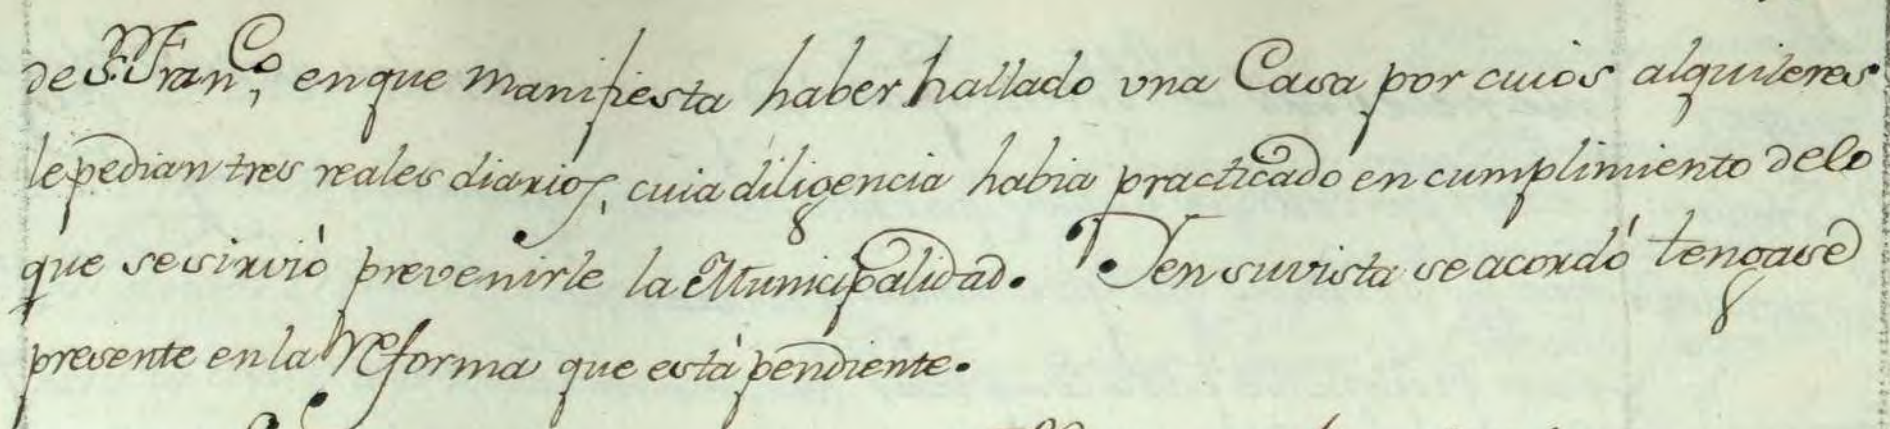 de S. Fran.co, en que manifiesta haber hallado vna Casa por cuios alquileres
le pedian tres reales diarios, cuia diligencia habia practicado en cumplimiento de lo
que se sirvió prevenirle la Municipalidad. Y en su vista se acordó tengase
presente en la reforma que está pendiente.